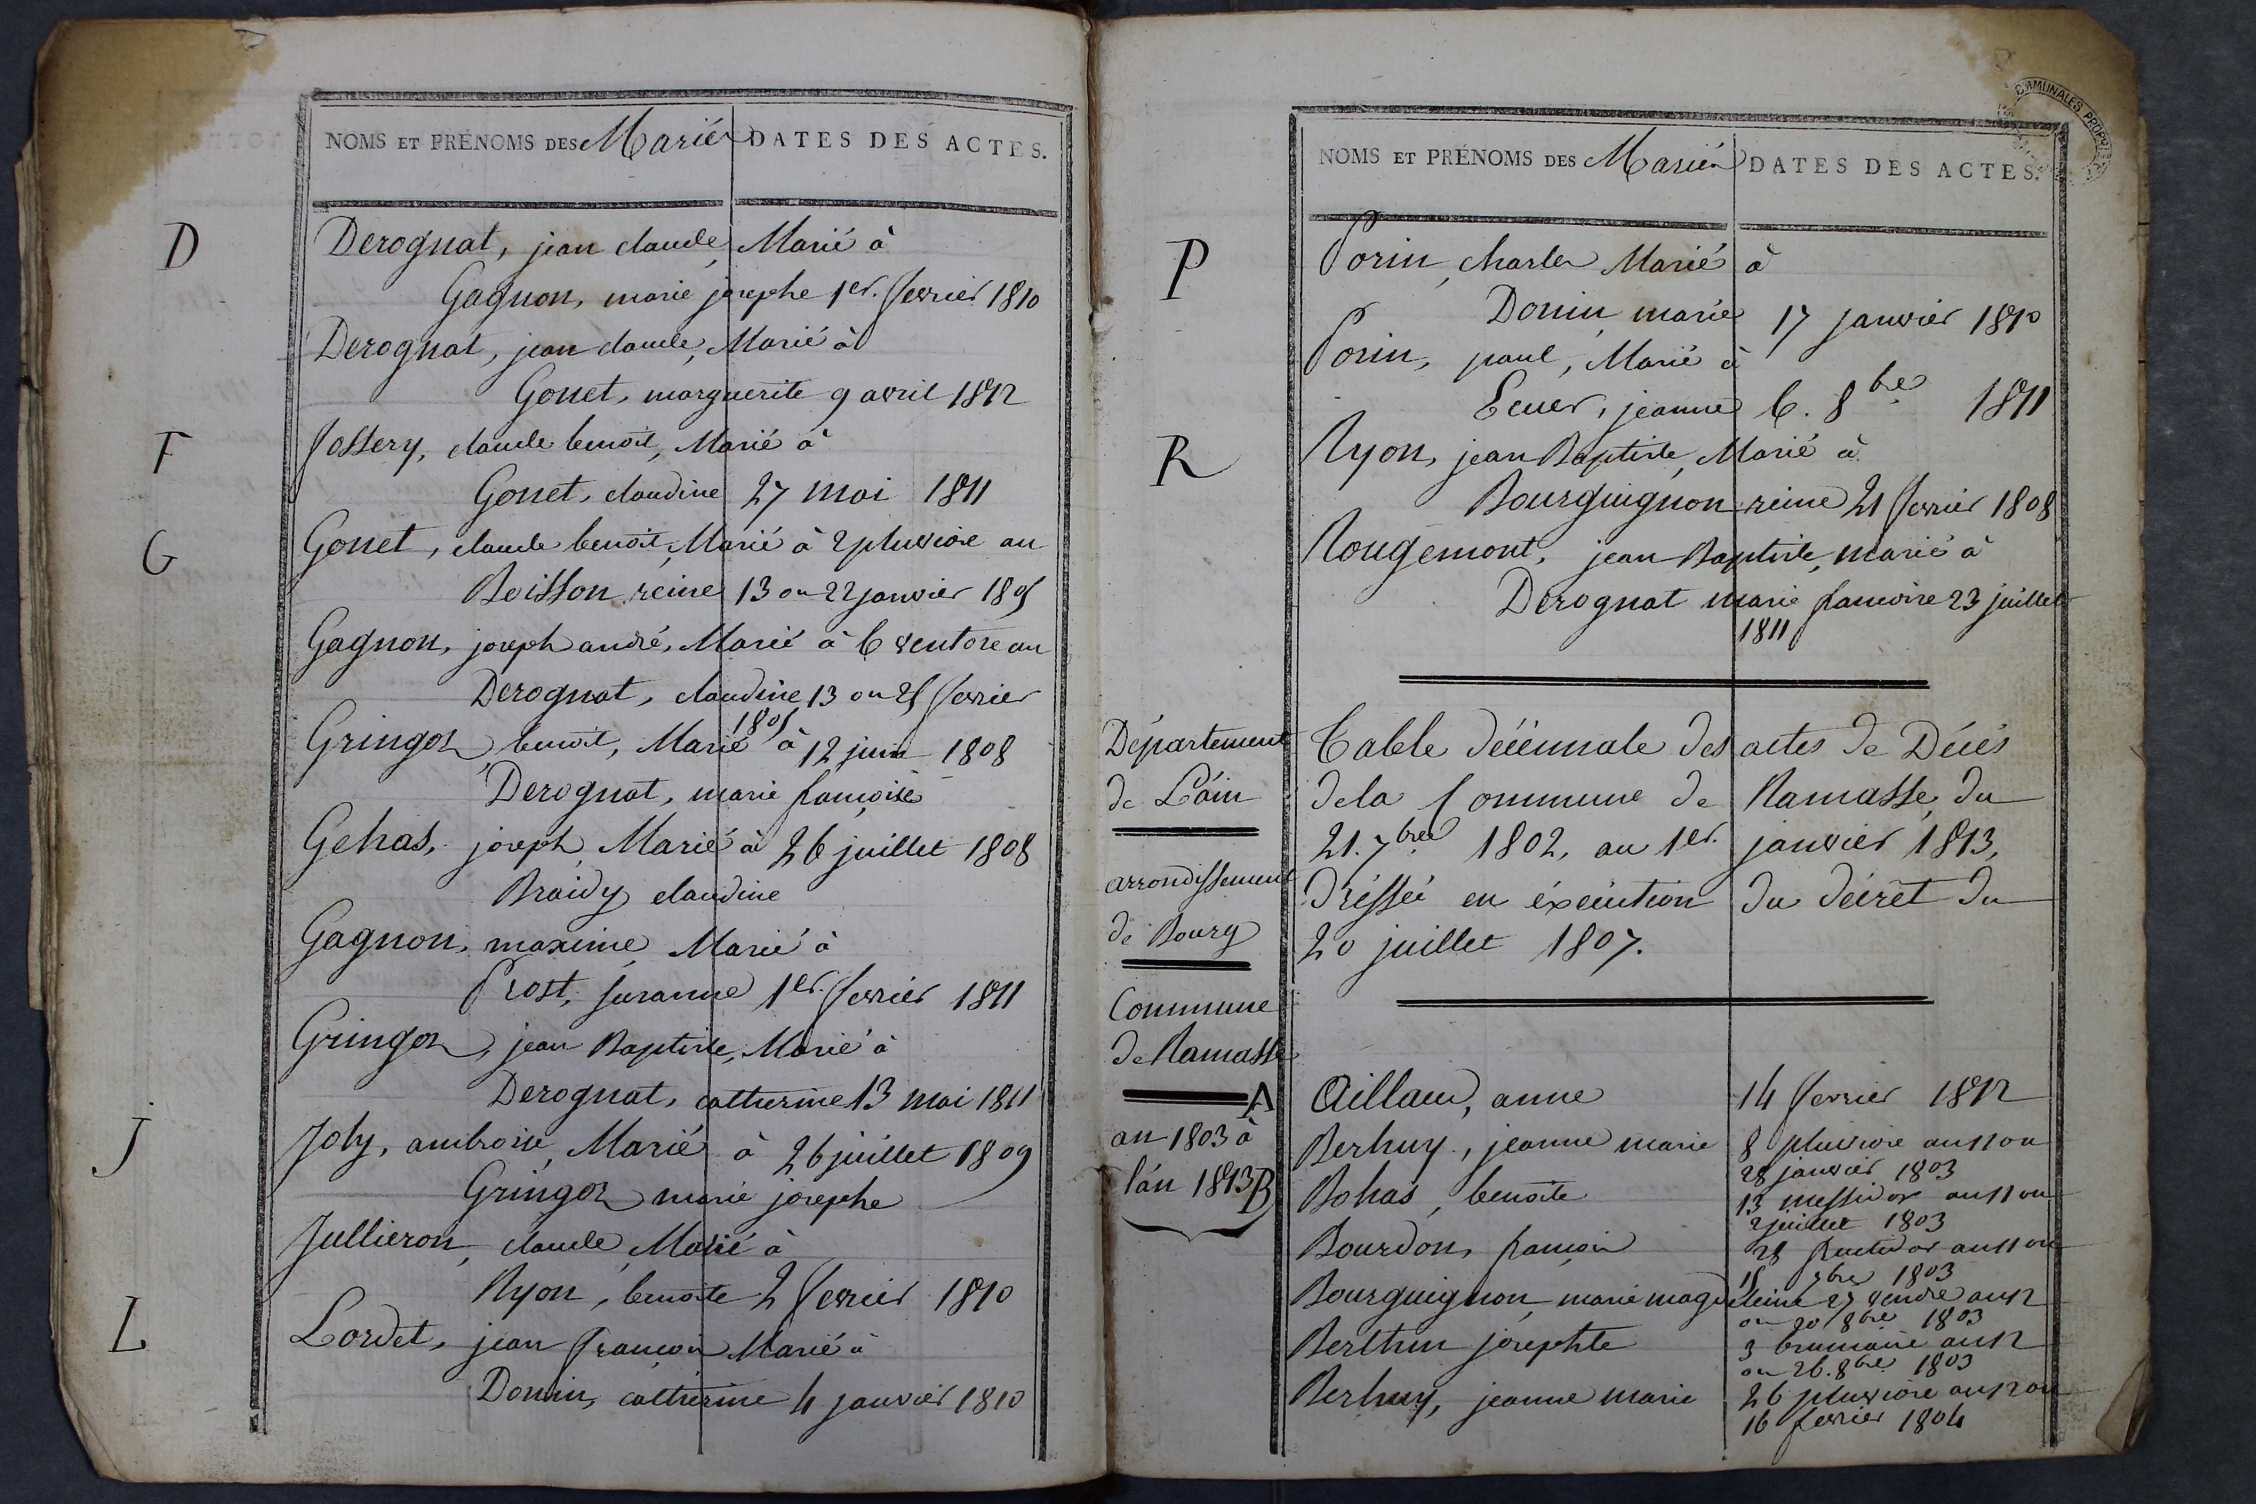 NOMS ET PRÉNOMS DES Mariés DATES DES ACTES.
D
Derognat, jean claude, Marié à
Gagnon, marie josephe 1er. fevrier 1810
Derognat, jean claude, Marié à
Gonet, marguerite 9 avril 1812
F
fossery, claude benoit, Marié à
Gonet, claudine 27 mai 1811
G
Gonet, claude benoit, Marié à 2 pluviose an
Boisson reine 13 ou 22 janvier 1805
Gagnon, joseph andré, Marié à 6 ventose an
Derognat, claudine 13 ou 25 fevrier
1805
Gringoz, benoit, Marié à 12 juin 1808
Derognat, marie françoise
Gehas, joseph, Marié à 26 juillet 1808
Braidy claudine
Gagnon, maxime, Marié à
Prost, suzanne 1er. fevrier 1811
Gringoz, jean Baptiste, Marié à
Derognat, catherine 13 mai 1811
J
Joly, ambroise, Marié à 26 juillet 1809
Gringoz marie josephe
Jullieron, claude, Marié à
Ryon, benoite 2 fevrier 1810
L
Lordet, jean françois Marié à
Donin, catherine 4 janvier 1810
NOMS ET PRÉNOMS DES Mariés DATES DES ACTES.
COMMUNALES PROPRIÉTÉ
P
Porin, charles Marié à
Donin, marie 17 janvier 1810
Porin, paul, Marié à
Ecuer, jeanne 6. 8bre 1811
R
Ryon, jean Baptiste, Marié à
Bourguignon reine 21 fevrier 1808
Rougemont, jean Baptiste, marié à
Derognat marie francoise 23 juillet
1811
Département
de L'ain
arrondissement
de Bourg
Commune
de Ramasse
an 1803 à
l'an 1813
Table décennale des actes de Décés
de la Commune de Ramasse, du
21. 7bre 1802, au 1er. janvier 1813,
dréssée en éxécution du décret du
20 juillet 1807.
A
Aillaud, anne 14 fevrier 1812
Berhuy, jeanne marie 8 pluviose an 11 ou
28 janvier 1803
B
Bohas, benoite 13 messidor an 11 ou
2 juillet 1803
Bourdon, françois 28 fructidor an 11 ou
15 7bre 1803
Bourguignon, marie magdeleine 27 vendre an 12
ou 20 8bre 1803
Berthin josephte 3 brumaire an 12
ou 26. 8bre 1803
Berhuy, jeanne marie 26 pluviose an 12 ou
16 fevrier 1804